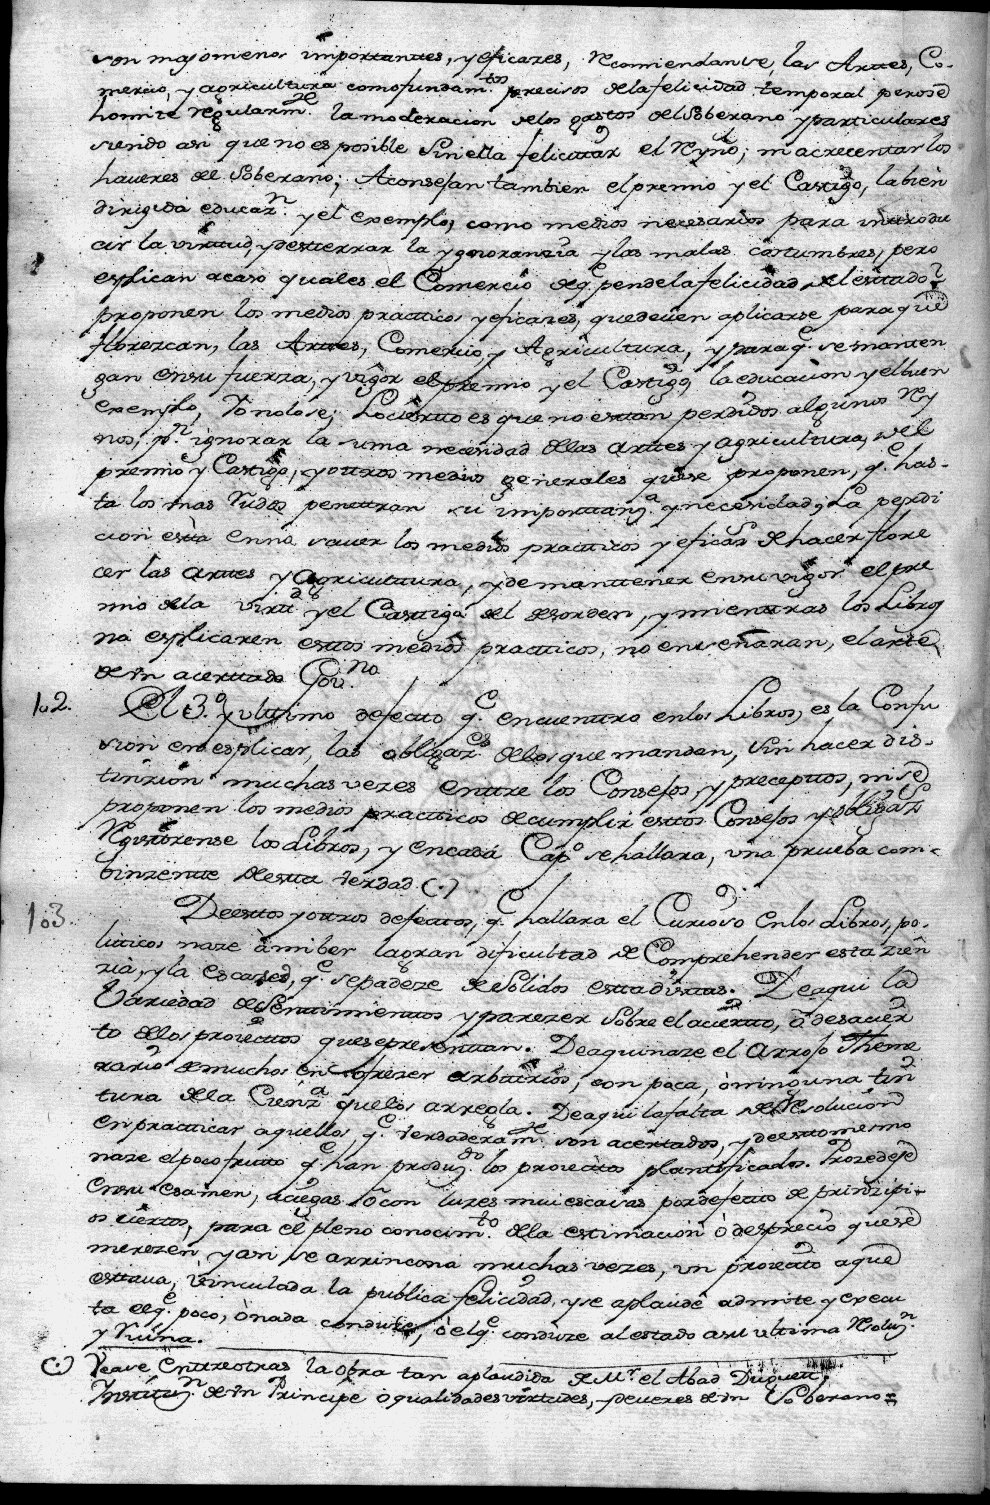 son mas o menos importtanttes, y eficazes, Recomiendanse, las Arttes, Co-
mercio, y agricultura como fundam.tos precisos de la felicidad temporal pero se
homite regularm.te la moderacion de los gastos del Soberano y particulares
siendo asi que no es posible sin ella felicittar el Reyno; ni acrecentar los
haveres del Soberano; Aconsejan tambien el premio y el Castigo, la bien
dirigida educaz.n y el exemplo, como medios necesarios para introdu
cir la virttud, y desterrar la ygnoranzia y las malas costumbres, pero
esplican acaso quales el Comercio de q.e pende la felicidad del esttado?
proponen los medios practticos y eficazes, que deven aplicarse para que
florezcan, las Arttes, Comercio, y Agricultura, y para q.e se manten
gan en su fuerza, y vigor el premio y el Castigo, la educacion y el buen
exemplo, Yo no lo se; Lo ciertto es que no esttan perdidos algunos Rey
nos, p.r ignorar la suma necesidad de las arttes y agricultura, del
premio y Castigo, y ottros medios generales que se proponen, q.e has-
ta los mas rudos penettran su importtanz.a y necesidad, La perdi
cion estta en no saver los medios practticos y eficaz.s de hacer flore
cer las arttes y agriculttura, y de manttener en su vigor el pre
mio de la virtt.d y el Casttigo del desorden, y mienttras los Libros
no esplicaren esttos medios practticos, no enseñaran, el arte
de un acerttado Gov.no
102. El 3.o y ulttimo defectto q.e encuenttro en los Libros, es la Confu
sion en esplicar, las obligaz.es de los que mandan, sin hacer dis-
tinzion muchas vezes enttre los Consejos, y precepttos, ni se
proponen los medios practticos de cumplir esttos Consejos y obligaz.s
Registrense los Libros, y en cada Cap.o se hallara, una prueba com-
binzentte de estta verdad (.)
103. De esttos y ottros defecttos, q.e hallara el Curioso en los Libros, po-
litticos naze à mi ber la gran dificulttad de Comprehender esta zien
zia, y la escased, q.e se padeze de solidos esttadisttas. De aqui la
Variedad de Senttimienttos y parezer sobre el aciertto, ò desacier
to de los proiecttos que se presenttan. De aqui naze el arrojo theme
rario de muchos en ofrezer arbittrios, con poca, ò ninguna tin
tura de la Cienz.a que los arregla. De aqui la falta de Resolucion
en practticar aquellos, q.e verdaderam.te son acerttados, y de estto mesmo
naze el poco frutto q.e han produz.do los proiecttos plantificados. Prozedese
en su esamen, a ciegas ò con luzes mui escasas por defectto de prinzipi-
os ciertos, para el pleno conocim.to de la estimacion ò desprecio que se
merezen, y asi se arrincona muchas vezes, un proiectto a que
esttava, vinculada la publica felicidad, y se aplaude admite y execu
ta el q.e poco, ò nada conduze, ò el q.e conduze al estado a su ultima Resoluz.n
y ruina.
(.) Vease enttre otras la obra tan aplaudida de M.r el Abad Duguett,
Instituz.n de un Principe ò qualidades virtudes, y deveres de un Soberano =